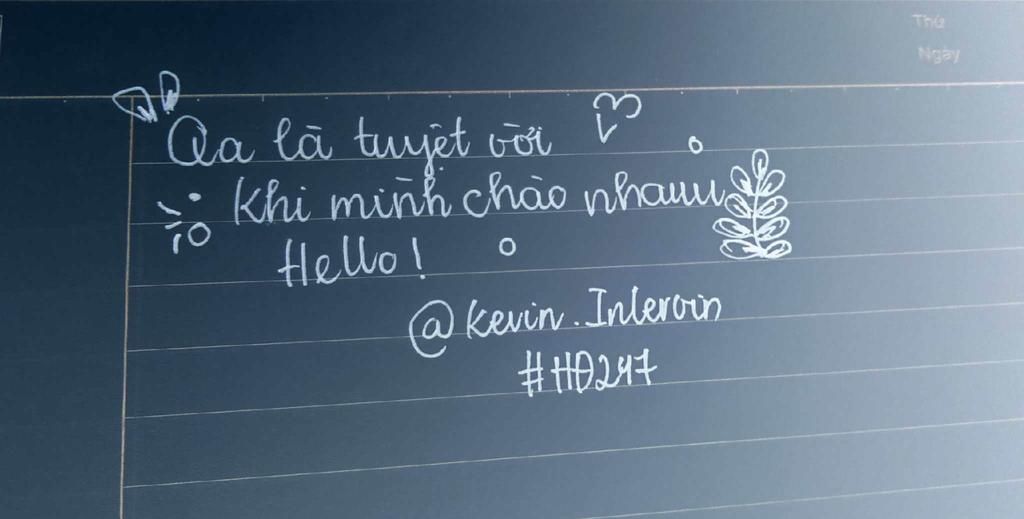 Thứ
Ngày
Qa là tuyệt vời
Khi mình chào nhauuu
Hello!
@kevin.Inlervin
#HĐ247